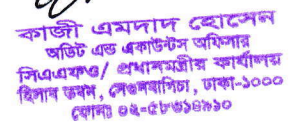 কাজী এমদাদ হোসেন
অডিট এন্ড একাউন্টস অফিসার
সিএএফও/ প্রধানমন্ত্রীর কার্যালয়
হিসাব ভবন, সেগুনবাগিচা, ঢাকা-১০০০
ফোনঃ ০২-৫৮৩১৪৯১০